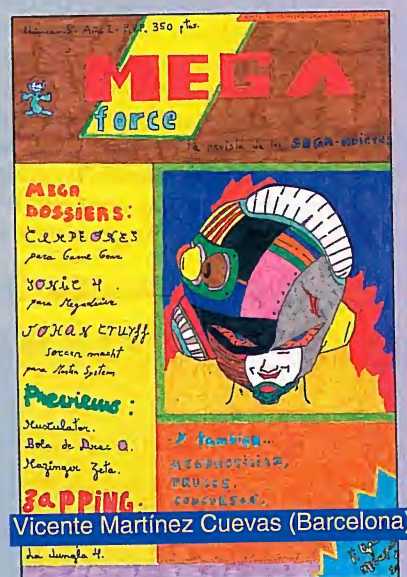 Año I - P.V.P. 350 ptas.
MEGA
force
la revista de los SEGA-adictos
MEGA
DOSSIERS:
CAMPEONES
para Game Gear
SONIC 4.
para Megadrive
JOHAN CRUYFF
Soccer macht
para Master System
Previews:
Mustulator.
Bola de Drac Q.
Mazinger Zeta.
ZAPPING:
La Jungla 4.
Y también...
MEGANOTICIAS,
TRUCOS,
CONCURSOS,
Vicente Martínez Cuevas (Barcelona)